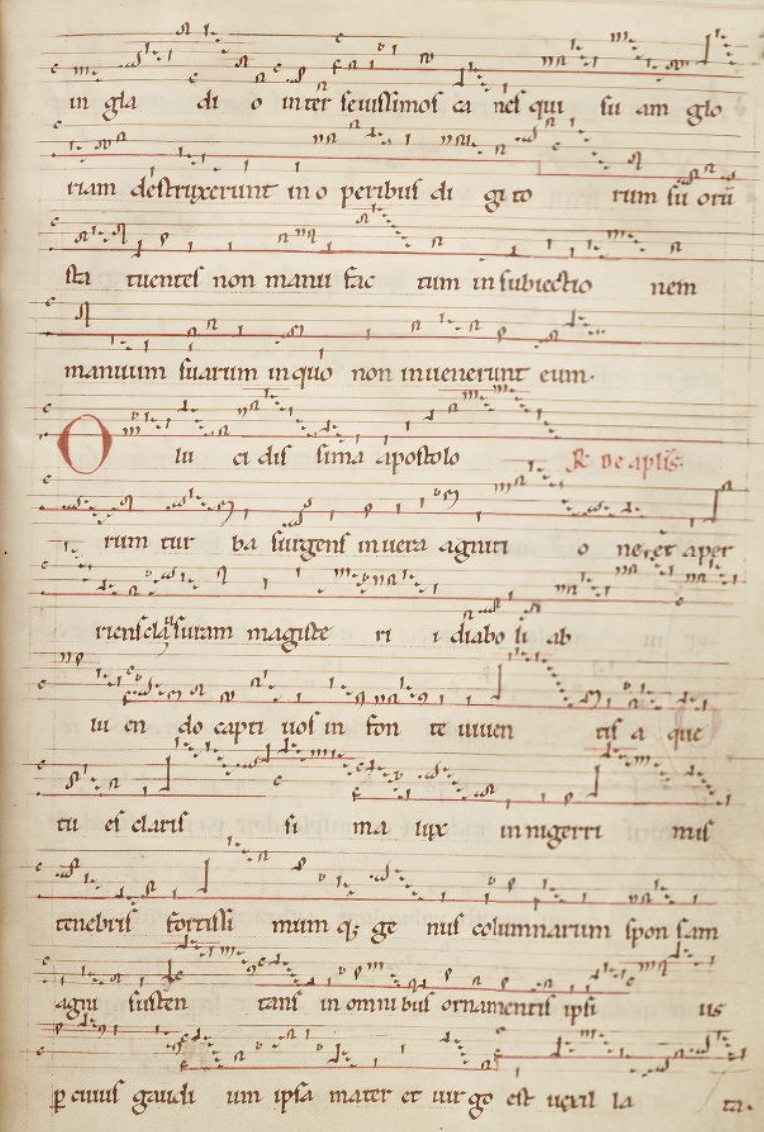 in gla di o inter seuissimos ca nes qui su am glo
riam destruxerunt in o peribus di gi to rum su orū
sta tuentes non manu fac tum in subiectio nem
manuum suarum in quo non inuenerunt eum.
O lu ci dis sima apostolo R̷ de aplis.
rum tur ba surgens in uera agniti o ne. et aper
riens clausuram magiste ri i diabo li ab
lu en do capti uos in fon te uiuen tis a que
tu es claris si ma lux in nigerri mis
tenebris fortissi mum q; ge nus columnarum spon sam
agni susten tans in omni bus ornamentis ipsi us
p cuius gaudi um ipsa mater et uirgo est uexil la ta.